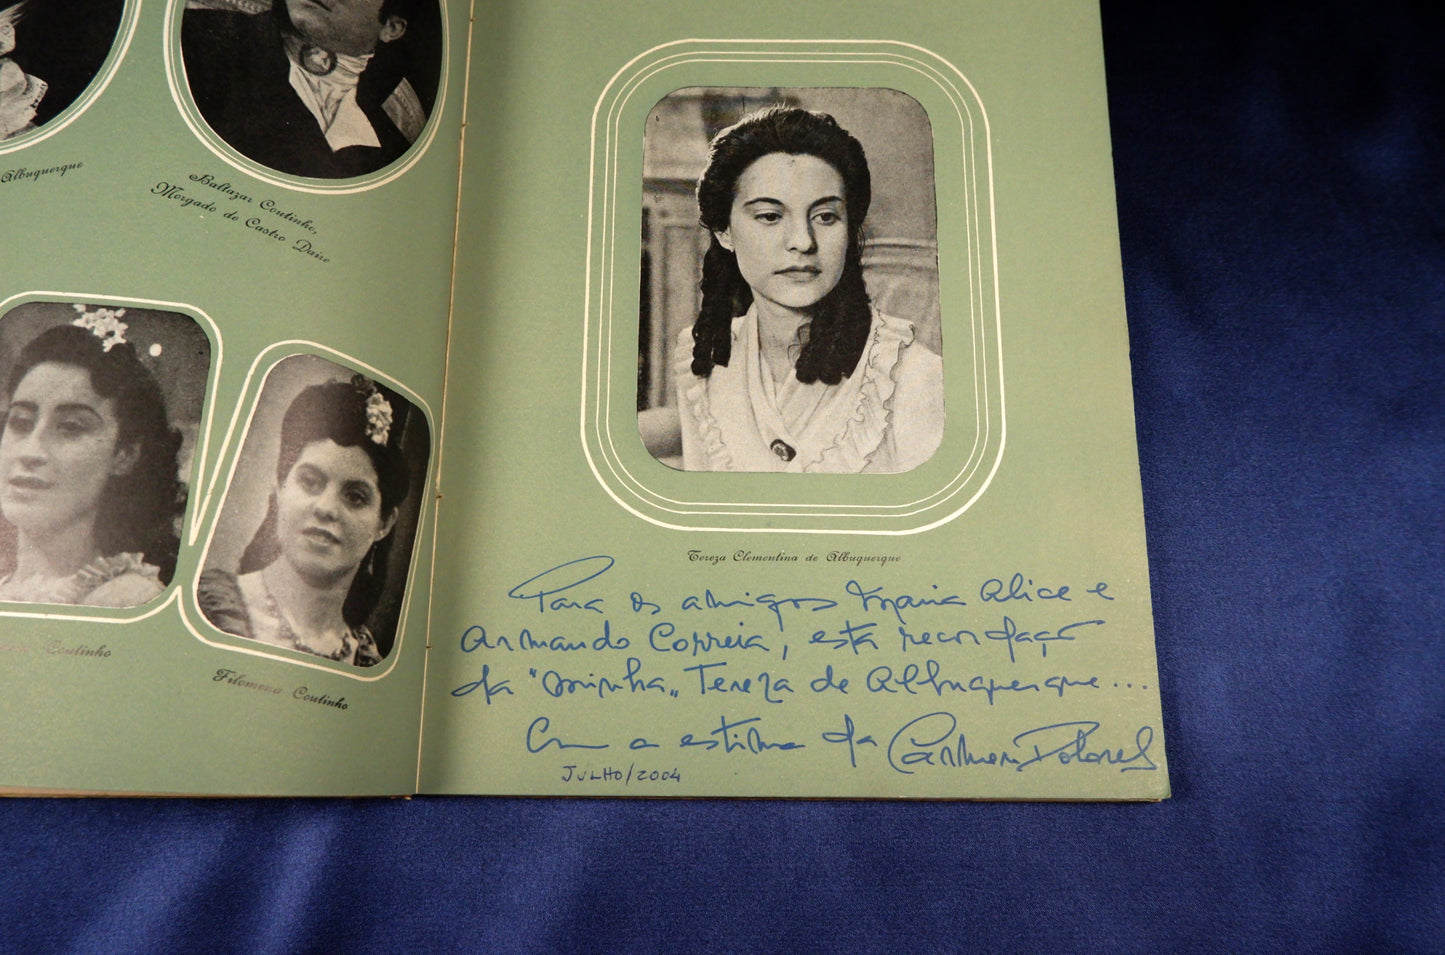 Albuquerque
Baltazar Coutinho,
Morgado de Castro Daire
Coutinho
Filomena Coutinho
Tereza Clementina de Albuquerque
Para os amigos Maria Alice e
Armando Correia, esta recordação
da "minha" Tereza de Albuquerque...
Com a estima da Carmen Dolores
JULHO/2004